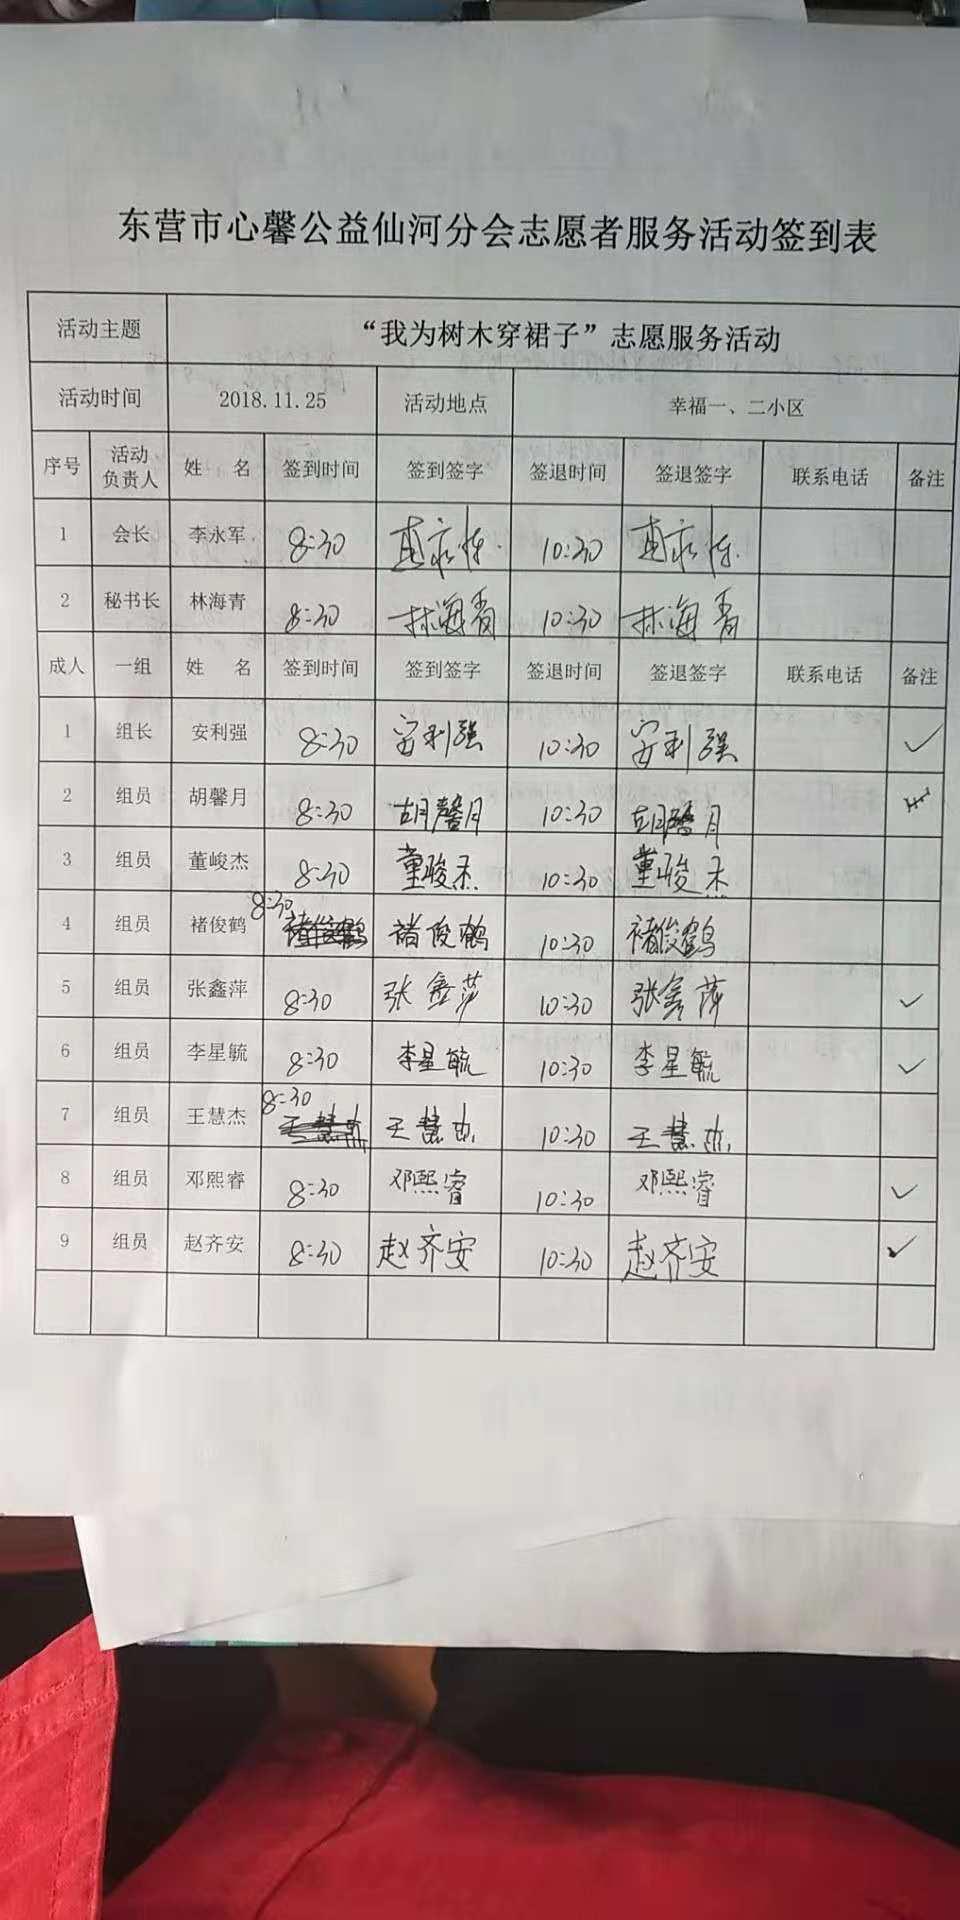 东营市心馨公益仙河分会志愿者服务活动签到表
活动主题 “我为树木穿裙子”志愿服务活动
活动时间 2018.11.25 活动地点 幸福一、二小区
序号 活动负责人 姓 名 签到时间 签到签字 签退时间 签退签字 联系电话 备注
1 会长 李永军 8:30 10:30
2 秘书长 林海青 8:30 林海青 10:30 林海青
成人 一组 姓 名 签到时间 签到签字 签退时间 签退签字 联系电话 备注
1 组长 安利强 8:30 安利强 10:30 安利强 ✓
2 组员 胡馨月 8:30 胡馨月 10:30 胡馨月
3 组员 董峻杰 8:30 董骏杰 10:30 董骏杰
4 组员 褚俊鹤 8:30 褚俊鹤 褚俊鹤 10:30 褚俊鹤
5 组员 张鑫萍 8:30 张鑫萍 10:30 张鑫萍 ✓
6 组员 李星毓 8:30 李星毓 10:30 李星毓 ✓
7 组员 王慧杰 8:30 王慧杰 王慧杰 10:30 王慧杰
8 组员 邓熙睿 8:30 邓熙睿 10:30 邓熙睿 ✓
9 组员 赵齐安 8:30 赵齐安 10:30 赵齐安 ✓